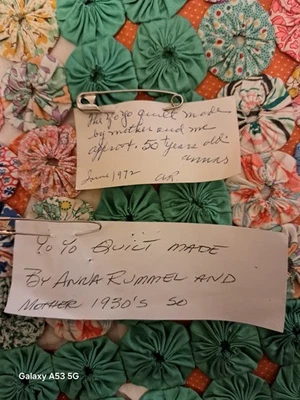 the YoYo quilt made
by mother and me
approx. 50 years old
annas
June 1972 AR
Yo Yo QUILT MADE
BY ANNA RUMMEL AND
MOTHER 1930'S SO
Galaxy A53 5G